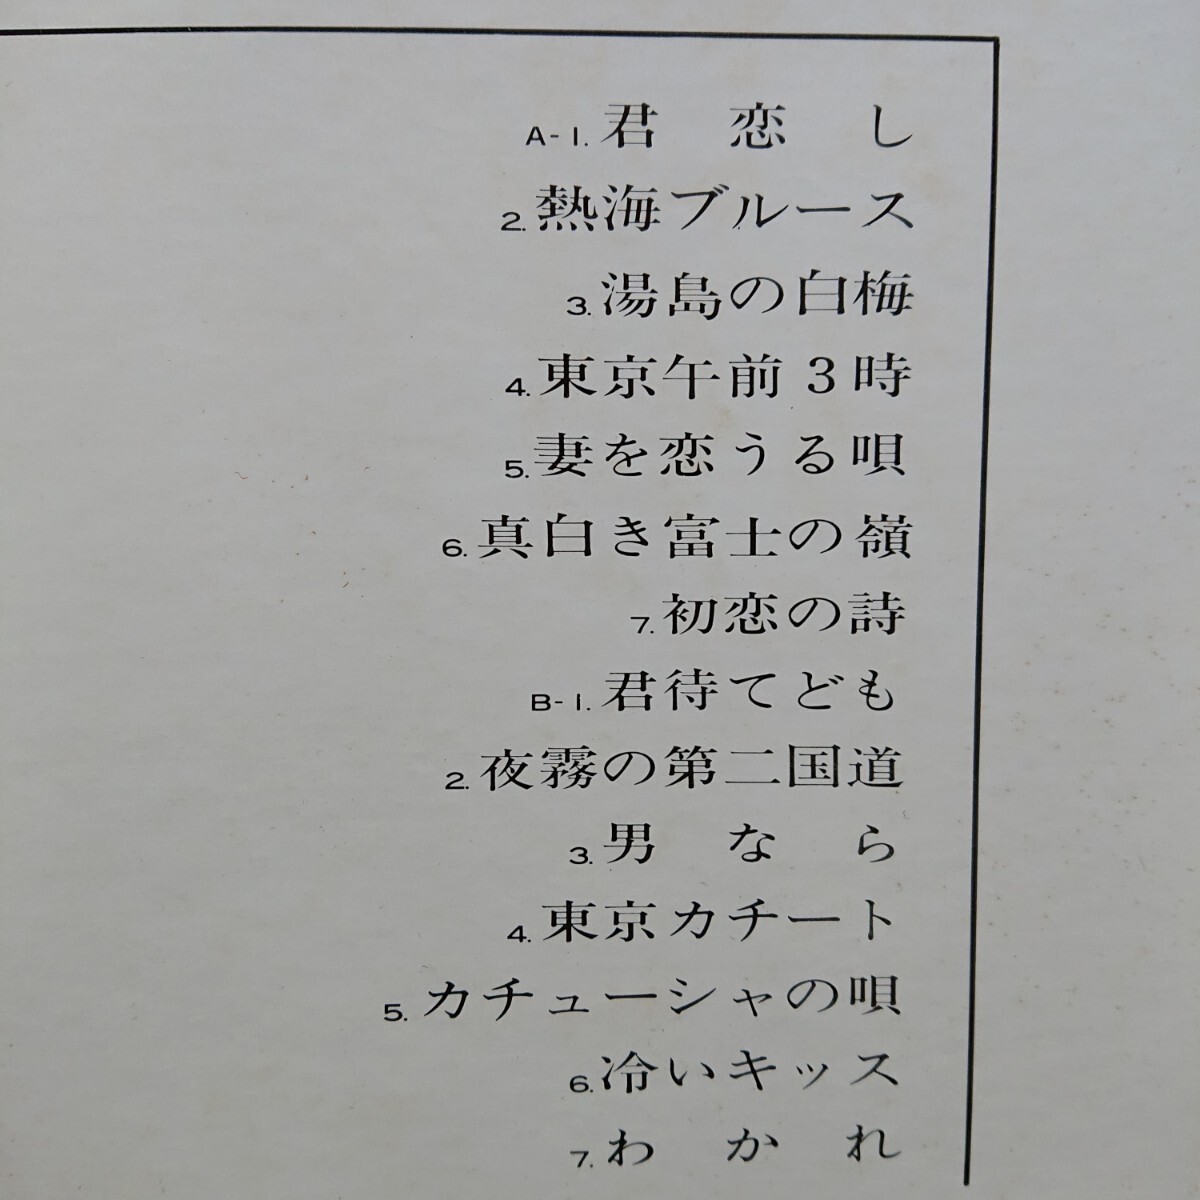 A-1. 君恋し
2. 熱海ブルース
3. 湯島の白梅
4. 東京午前３時
5. 妻を恋うる唄
6. 真白き富士の嶺
7. 初恋の詩
B-1. 君待てども
2. 夜霧の第二国道
3. 男なら
4. 東京カチート
5. カチューシャの唄
6. 冷いキッス
7. わかれ